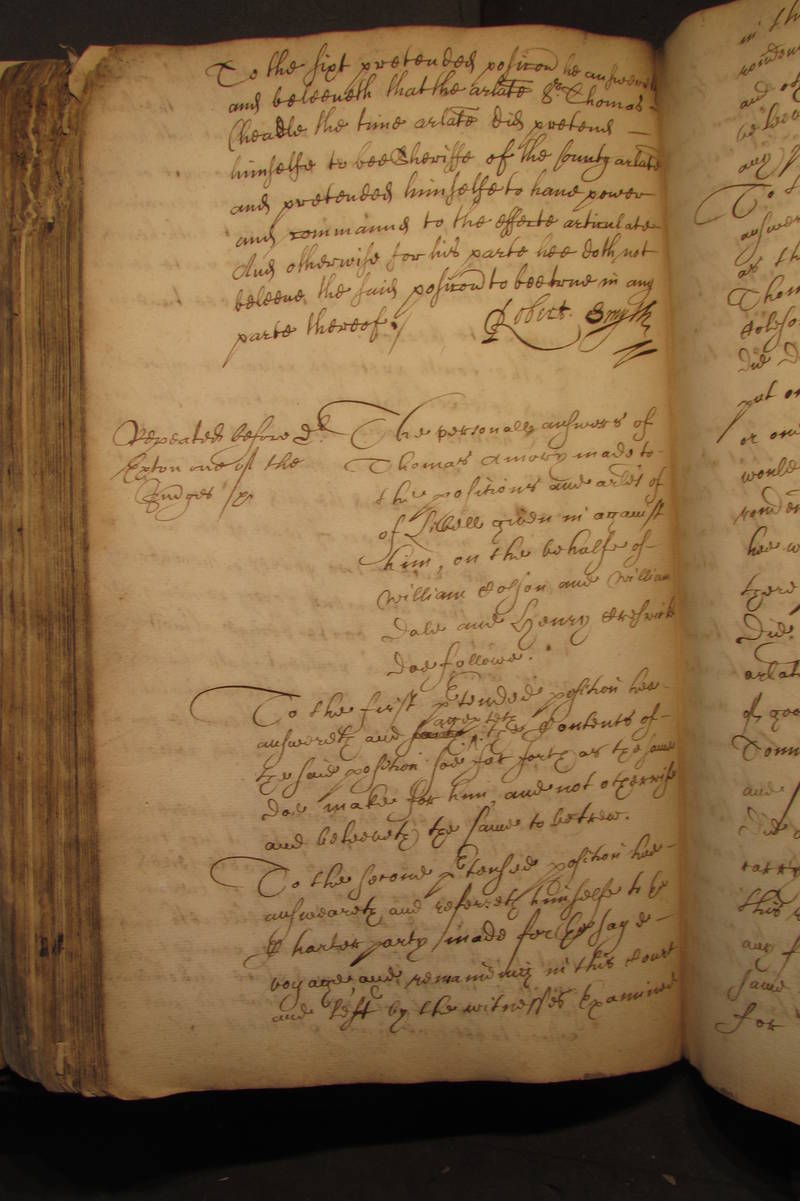 To the sixt pretended posicon he answereth
and beleeueth that the arlate Sr Thomas
Cheadle the time arlate did pretend
himselfe to bee Sheriffe of the County arlate
and pretended himselfe to haue power
and command to the effecte articulate
And otherwise for his parte hee doth not
beleeue the said posicon to bee true in any
parte thereof
Robert Smyth
Repeated before Dr
Exton one of the
Judges
The personall answers of
Thomas Amory made to
the positions and arles of
of Libell given in against
him, on the behalfe of
William Colson and William
Dale and Henry
doe followe.
To the first ptended position hee
answereth and the Contents of
the said position soe far forth as the same
doe make for him, and not otherwise
and beleeveth the same to be trew.
To the second ptended position hee
answeareth and refereth himselfe to the
Charter party made for the sayd
voyage, and remaining in this Court
and left by the witnesses Examined
in th
and
Tho
Did
put on
or one
would
hee w
there
Did
arlat
of goo
and
Did
this
any f
same
for